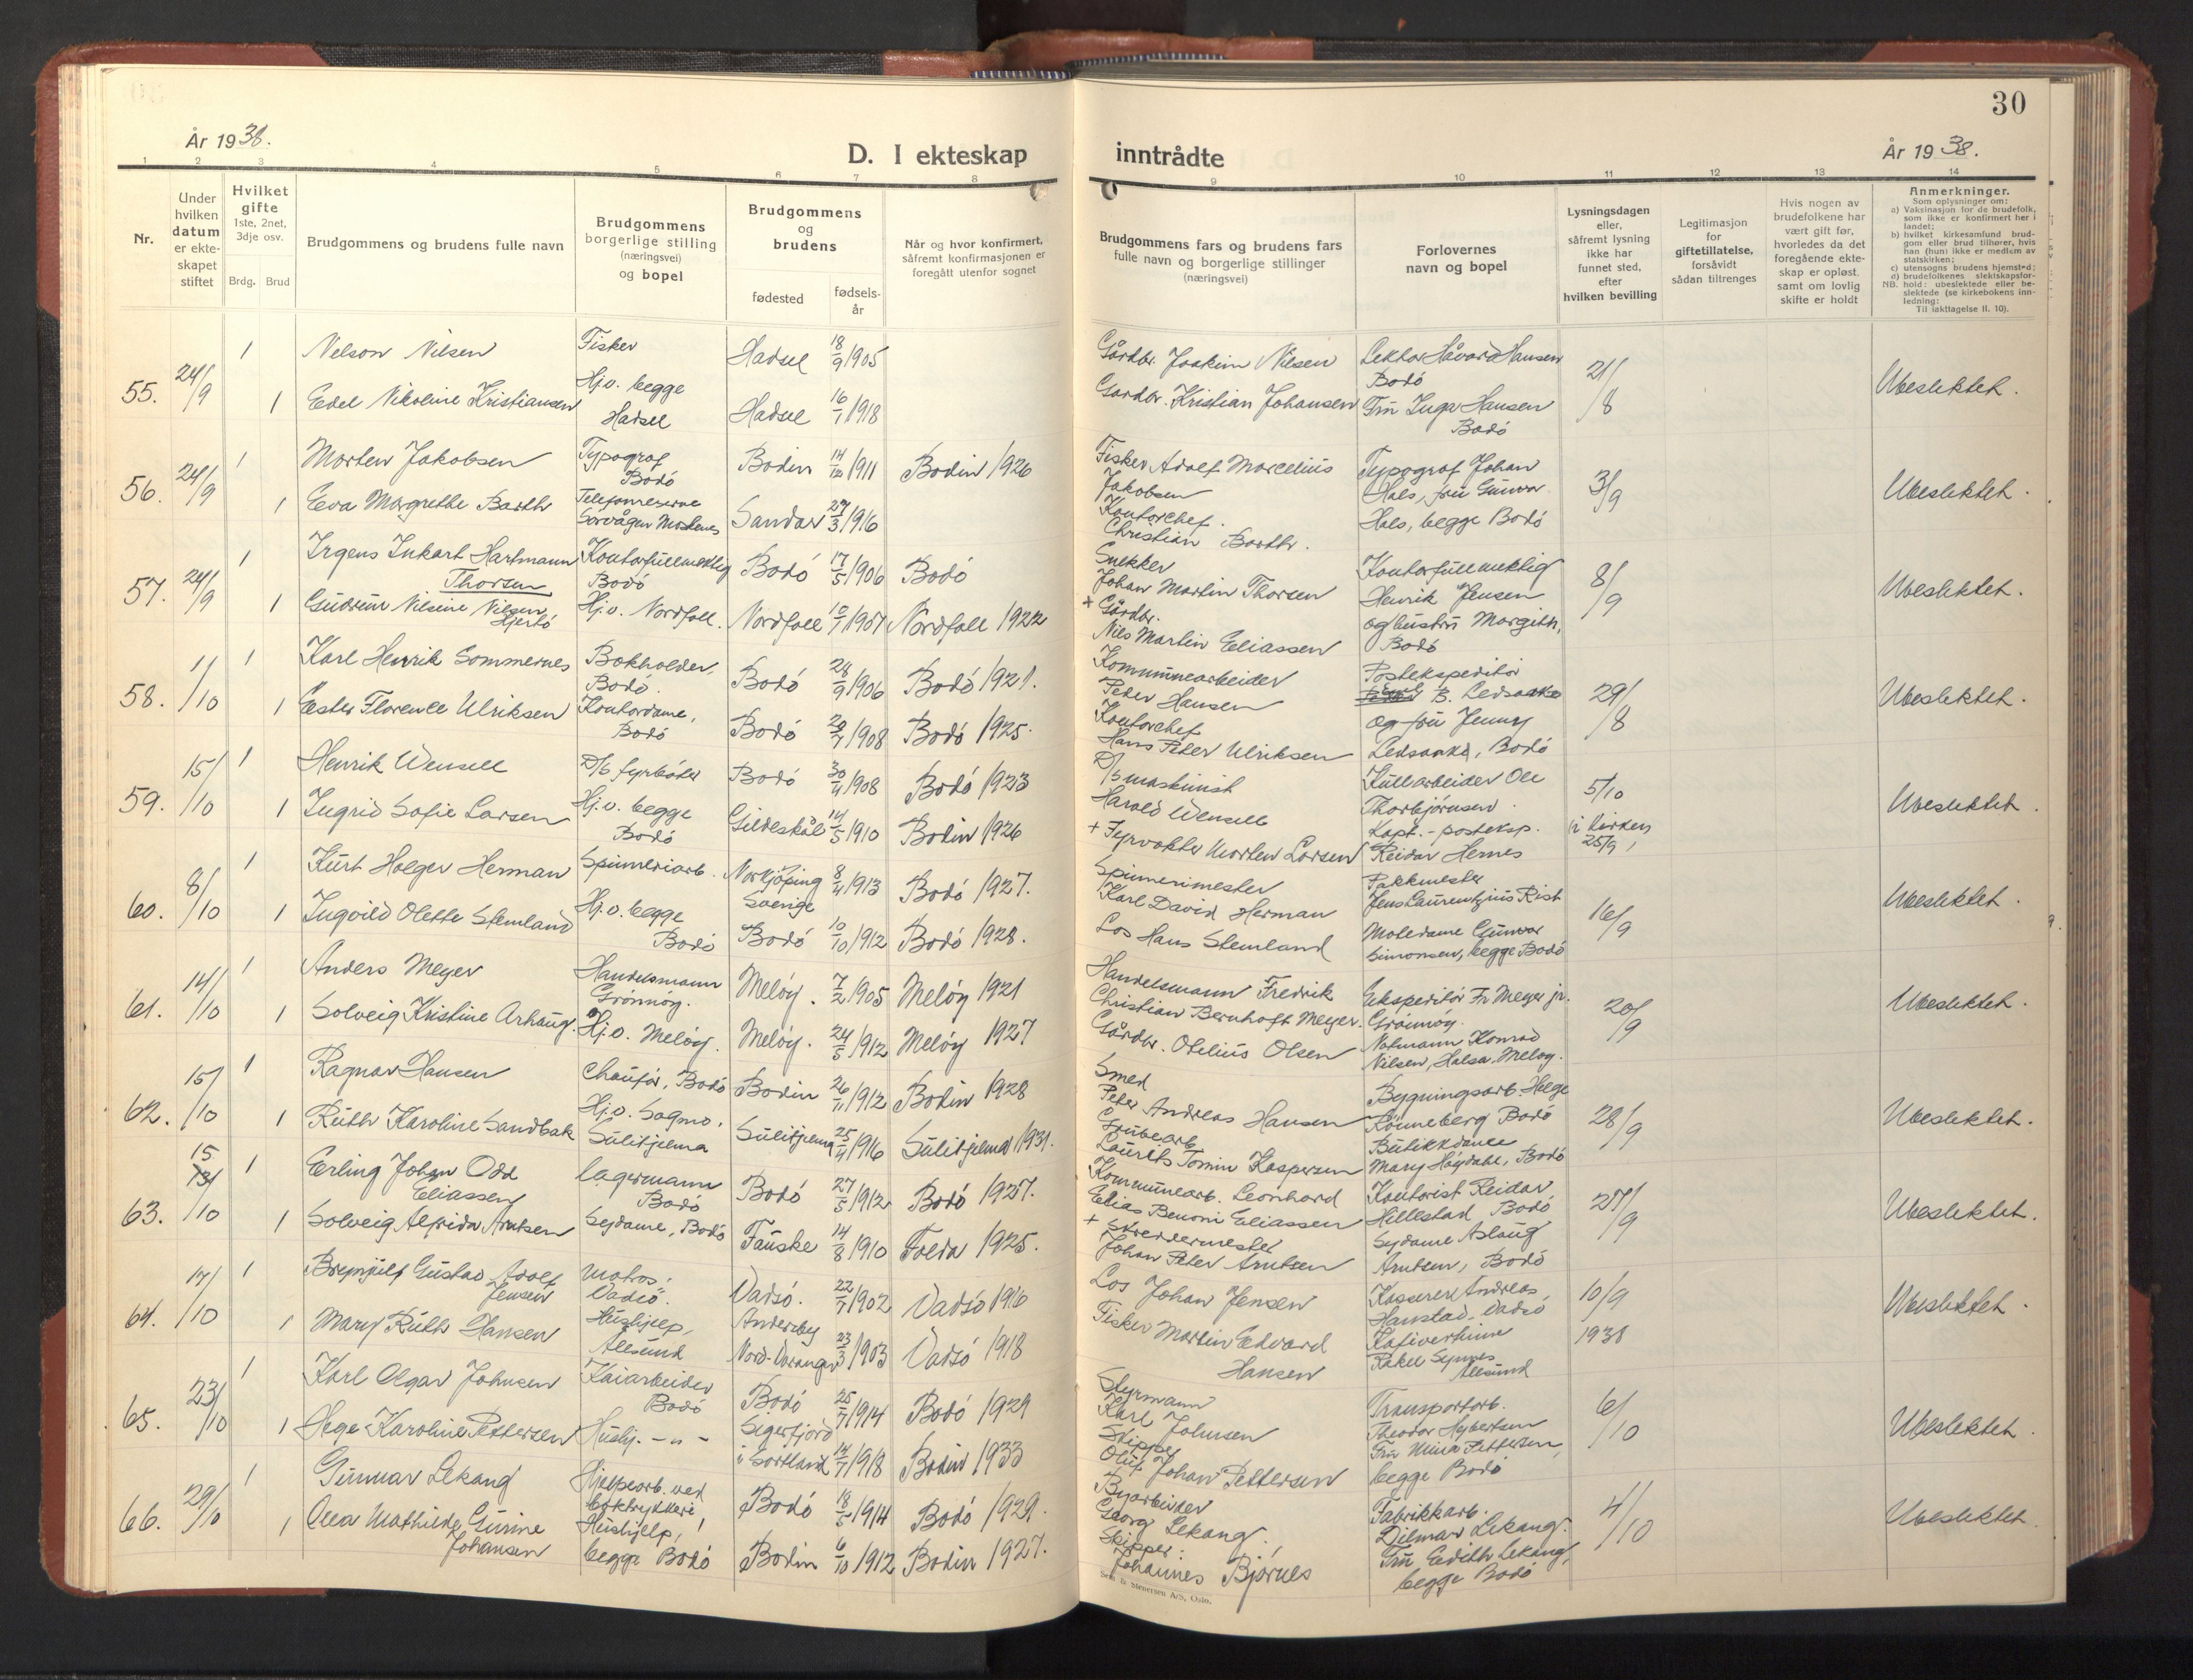 30
År 1938.
D. I ekteskap
inntrådte
År 1938.
1 2 3 4 5 6 7 8 9 10 11 12 13 14
Nr.
Under hvilken datum er ekteskapet stiftet
Hvilket gifte
1ste, 2net, 3dje osv.
Brdg. Brud
Brudgommens og brudens fulle navn
Brudgommens borgerlige stilling (næringsvei) og bopel
Brudgommens og brudens
fødested
fødselsår
Når og hvor konfirmert, såfremt konfirmasjonen er foregått utenfor sognet
Brudgommens fars og brudens fars fulle navn og borgerlige stillinger (næringsvei)
Forlovernes navn og bopel
Lysningsdagen eller, såfremt lysning ikke har funnet sted, efter hvilken bevilling
Legitimasjon for giftetillatelse, forsåvidt sådan tiltrenges
Hvis nogen av brudefolkene har vært gift før, hvorledes da det foregående ekteskap er opløst, samt om lovlig skifte er holdt
Anmerkninger.
Som oplysninger om:
a) Vaksinasjon for de brudefolk, som ikke er konfirmert her i landet;
b) hvilket kirkesamfund brudgom eller brud tilhører, hvis han (hun) ikke er medlem av statskirken;
c) utensogns brudens hjemsted;
d) brudefolkenes slektskapsforhold: ubeslektede eller beslektede (se kirkebokens innledning:
NB.
Til iakttagelse II. 10).
55. 24/9
1 Nelson Nilsen Fisker Hadsel 18/9 1905 Gårdbr. Joakim Nilsen Lektor Håvard Hansen Bodö 21/8 Ubeslektet.
1 Edel Nikoline Kristiansen Hj.v. begge Hadsel Hadsel 16/7 1918 Gardbr. Kristian Johansen Fru Inga Hansen Bodö
56. 24/9
1 Morten Jakobsen Typograf Bodö Bodin 14/12 1911 Bodin 1926 Fisker Adolf Marcelius Jakobsen Typograf Johan Hals, fru Gunvor Hals, begge Bodö 3/9 Ubeslektet.
1 Eva Margrethe Barth Sörvågen Moskenes Sandar 27/3 1916 Kontorchef. Christian Barth.
57. 24/9
1 Irgens Inkart Hartmann Thorsen Kontorfullmektig Bodö Bodö 17/5 1906 Bodö Snekker Johan Martin Thorsen Kontorfullmektig Henrik Jensen og hustru Margith, Bodö 8/9 Ubeslektet.
1 Gudrun Nilsine Nilsen Hjertö Hj.v. Nordfoll. Nordfoll 10/7 1907 Nordfoll 1922 + Gårdbr. Nils Martin Eliassen
58. 1/10
1 Karl Henrik Sommernes Bokholder, Bodö. Bodö 28/9 1906 Bodö 1921. Kommunearbeider Peder Hansen Postekspeditör B. Ledsaak og fru Jenny Ledsaak, Bodö 29/8 Ubeslektet.
1 Ester Florence Ulriksen Kontordame, Bodö Bodö 20/7 1908 Bodö 1925. Kontorchef Hans Peter Ulriksen
59. 15/10
1 Henrik Wensell D/S fyrböter Bodö 30/4 1908 Bodö 1923 D/S maskinist Harald Wensell Kullarbeider Ole Thorbjörnsen. Kapt.-posteksp. Reidar Hernes 5/10 (i kirken 25/9) Ubeslektet.
1 Ingrid Sofie Larsen Hj.v. begge Bodö Gildeskål 14/5 1910 Bodin 1926 + Fyrvokter Morten Larsen
60. 8/10
1 Kurt Holger Herman Spinneriarb. Norkjöping Sverige 8/4 1913 Bodö 1927. Spinnerimester Karl David Herman Pakkmester Jens Laurentzius Rist Motedame Gunvor Simonsen, begge Bodö 16/9 Ubeslektet.
1 Ingvild Olette Stemland Hj.v. begge Bodö Bodö 10/10 1912 Bodö 1928. Los Hans Stemland
61. 14/10
1 Anders Meyer Handelsmann Grönnöy. Melöy. 7/2 1905 Melöy 1921 Handelsmann Fredrik Christian Bernhoft Meyer. Ekspeditör Fr Meyer jr. Grönnöy. Notmann Konrad Nilsen, Halsa, Melöy. 20/9 Ubeslektet.
1 Solveig Kristine Arhaug. Hj.v. Melöy. Melöy. 24/5 1912 Melöy 1927 Gårdbr. Otelius Olsen
62. 15/10
1 Ragnar Hansen Chauför, Bodö Bodin 26/11 1912 Bodin 1928 Smed Peter Andreas Hansen Bygningsarb. Helge Rönneberg Bodö Butikkdame Mary Höydahl, Bodö 28/9 Ubeslektet.
1 Ruth Karoline Sandbak Hj.v. Sagmo, Sulitjelma Sulitjelma 25/4 1916 Sulitjelma 1931. Grubearb. Laurits Tomin Kaspersen
63. 15/10
1 Erling Johan Odd Eliassen Lagermann Bodö Bodö 27/5 1912 Bodö 1927. Kommunearb. Leonhard Elias Benoni Eliassen Kontorist Reidar Hillestad Bodö Sydame Aslaug Arntsen, Bodö 27/9 Ubeslektet.
1 Solveig Alfrida Arntsen Sydame, Bodö Fauske 14/8 1910 Folda 1925. + Skreddermester Johan Peter Arntsen
64. 17/10
1 Brynjulf Gustav Adolf Jensen Matros. Vadsö. Vadsö. 22/7 1902 Vadsö 1916 Los Johan Jensen Kasserer Andreas Hanstad, Vadsö Kafivertinne Rakel Synnes Ålesund 10/9 1938 Ubeslektet.
1 Mary Ruth Hansen Hushjelp, Ålesund Andersby Nord-Varanger 23/3 1903 Vadsö 1918 Fisker Martin Edvard Hansen
65. 23/10
1 Karl Olgar Johnsen Kaiarbeider Bodö Bodö 25/7 1914 Bodö 1929 Styrmann Karl Johnsen Transportarb. Theodor Hybertsen Fru Mina Pettersen, begge Bodö 6/10 Ubeslektet.
1 Hege Karoline Pettersen Hushj. -"- Sigerfjord i Sortland 14/7 1918 Bodin 1933 Skipper Oluf Johan Pettersen
66. 29/10
1 Gunnar Lekang Hjelpearb. ved boktrykkeri, Bodö 18/5 1914 Bodö 1929. Byarbeider Georg Lekang, Fabrikkarb. Dilmar Lekang. Fru Edith Lekang, begge Bodö 4/10 Ubeslektet.
1 Olea Mathilde Gurine Johansen Hushjelp, begge Bodö Bodin 6/10 1912 Bodin 1927. Skipper. Johannes Bjørnes
Sem & Stenersen A/S, Oslo.